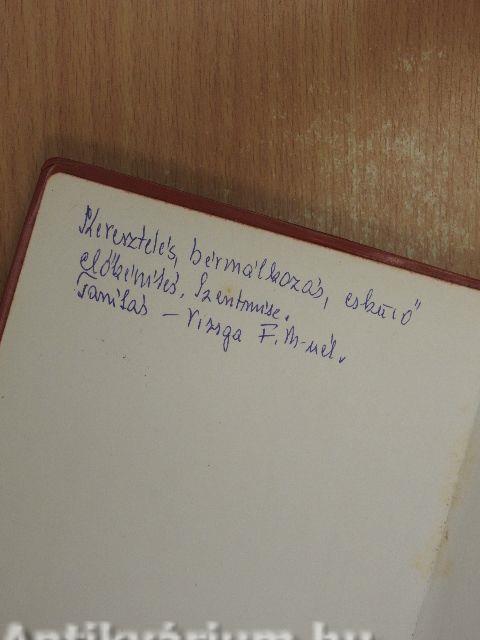 Keresztelés, bérmálkozás, esküvő
előkészítés, Szentmise.
Tanítás – Vizsga F. M-nél.
Antikvárium.hu